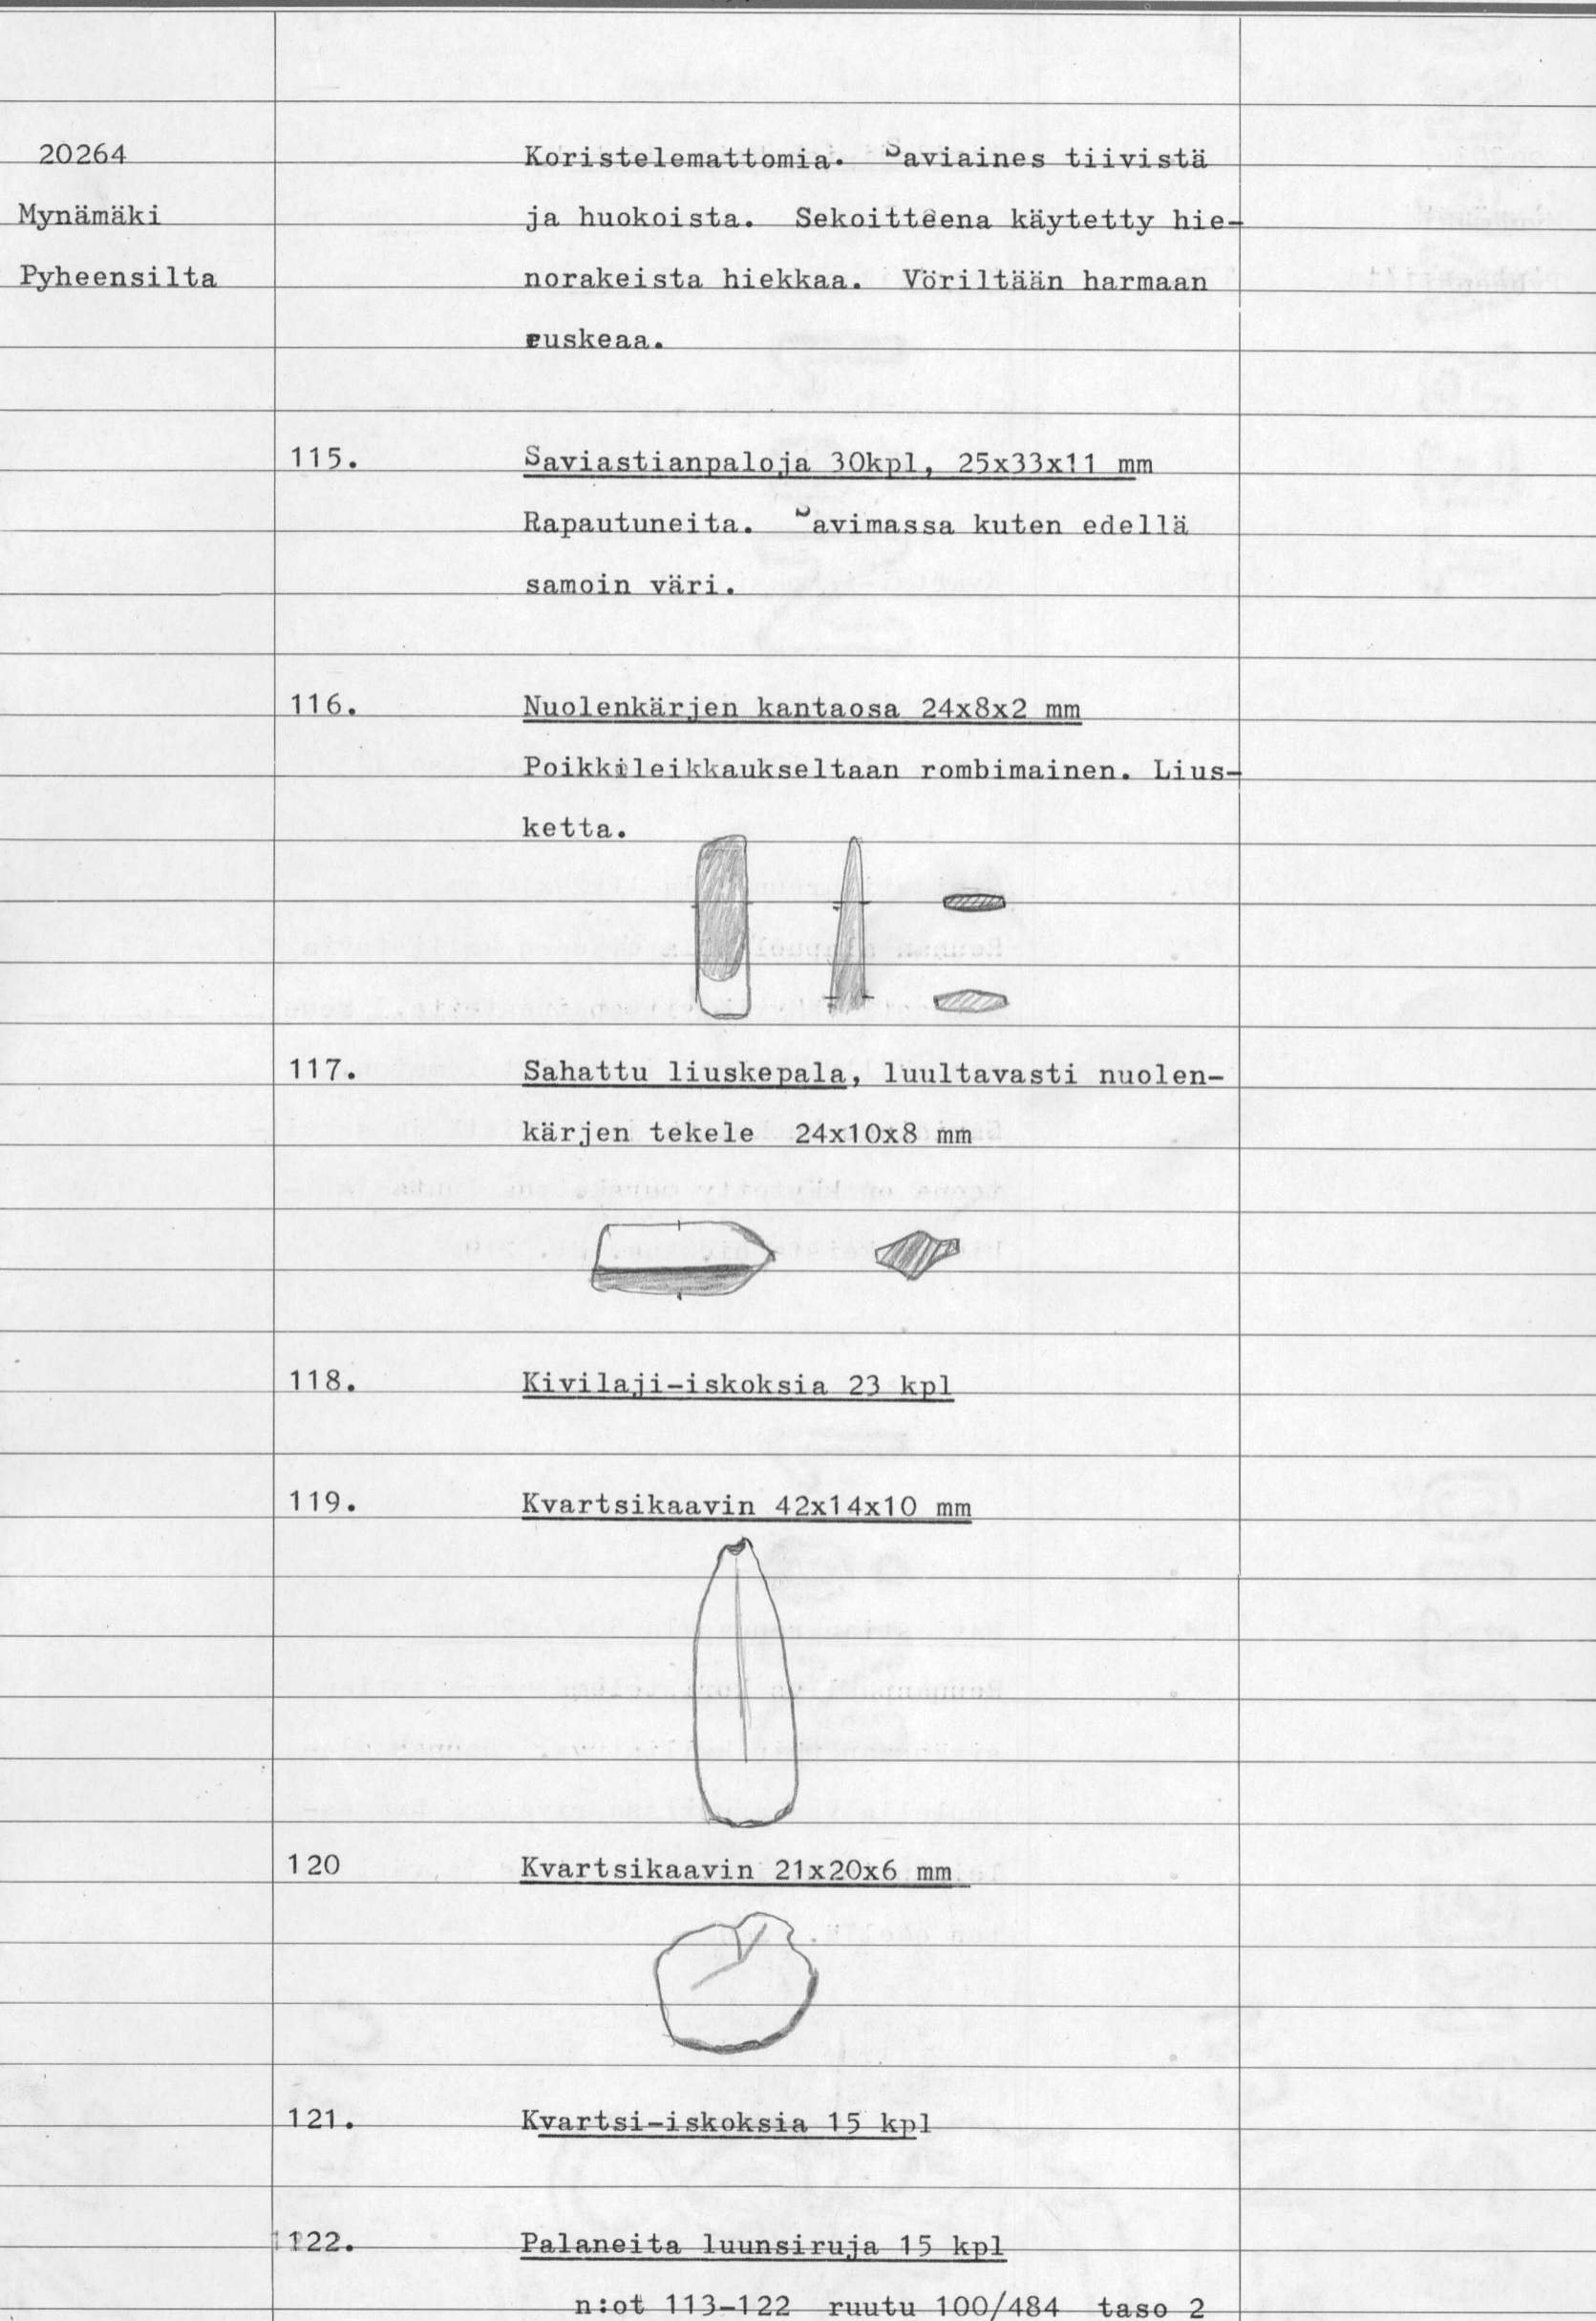 20264 Koristelemattomia. Saviaines tiivistä
Mynämäki ja huokoista. Sekoitteena käytetty hie-
Pyheensilta norakeista hiekkaa. Vöriltään harmaan
ruskeaa.
115. Saviastianpaloja 30kpl, 25x33x11 mm
Rapautuneita. Savimassa kuten edellä
samoin väri.
116. Nuolenkärjen kantaosa 24x8x2 mm
Poikkileikkaukseltaan rombimainen. Lius-
ketta.
117. Sahattu liuskepala, luultavasti nuolen-
kärjen tekele 24x10x8 mm
118. Kivilaji-iskoksia 23 kpl
119. Kvartsikaavin 42x14x10 mm
120 Kvartsikaavin 21x20x6 mm
121. Kvartsi-iskoksia 15 kpl
122. Palaneita luunsiruja 15 kpl
n:ot 113-122 ruutu 100/484 taso 2